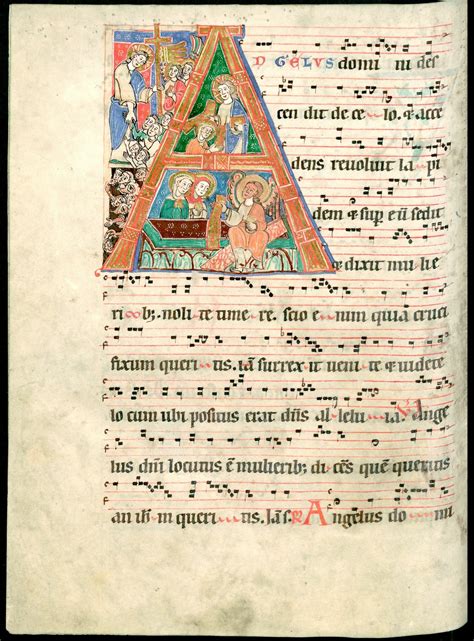 A NGELUS domi ni des
cen dit de ce lo. & acce
dens revoluit la pi
dem & sup eū sedit
& dixit mulie
ri b; noli te time re. scio e num quia cruci
fixum queri tis. iā surrex it veni te & videte
lo cum ubi positus erat dn̄s al lelu ia. V Ange
lus dn̄i locutus ē mulierib; di cēs quē queritis
an ih̄m queri tis. Iā s. R Angelus do mi